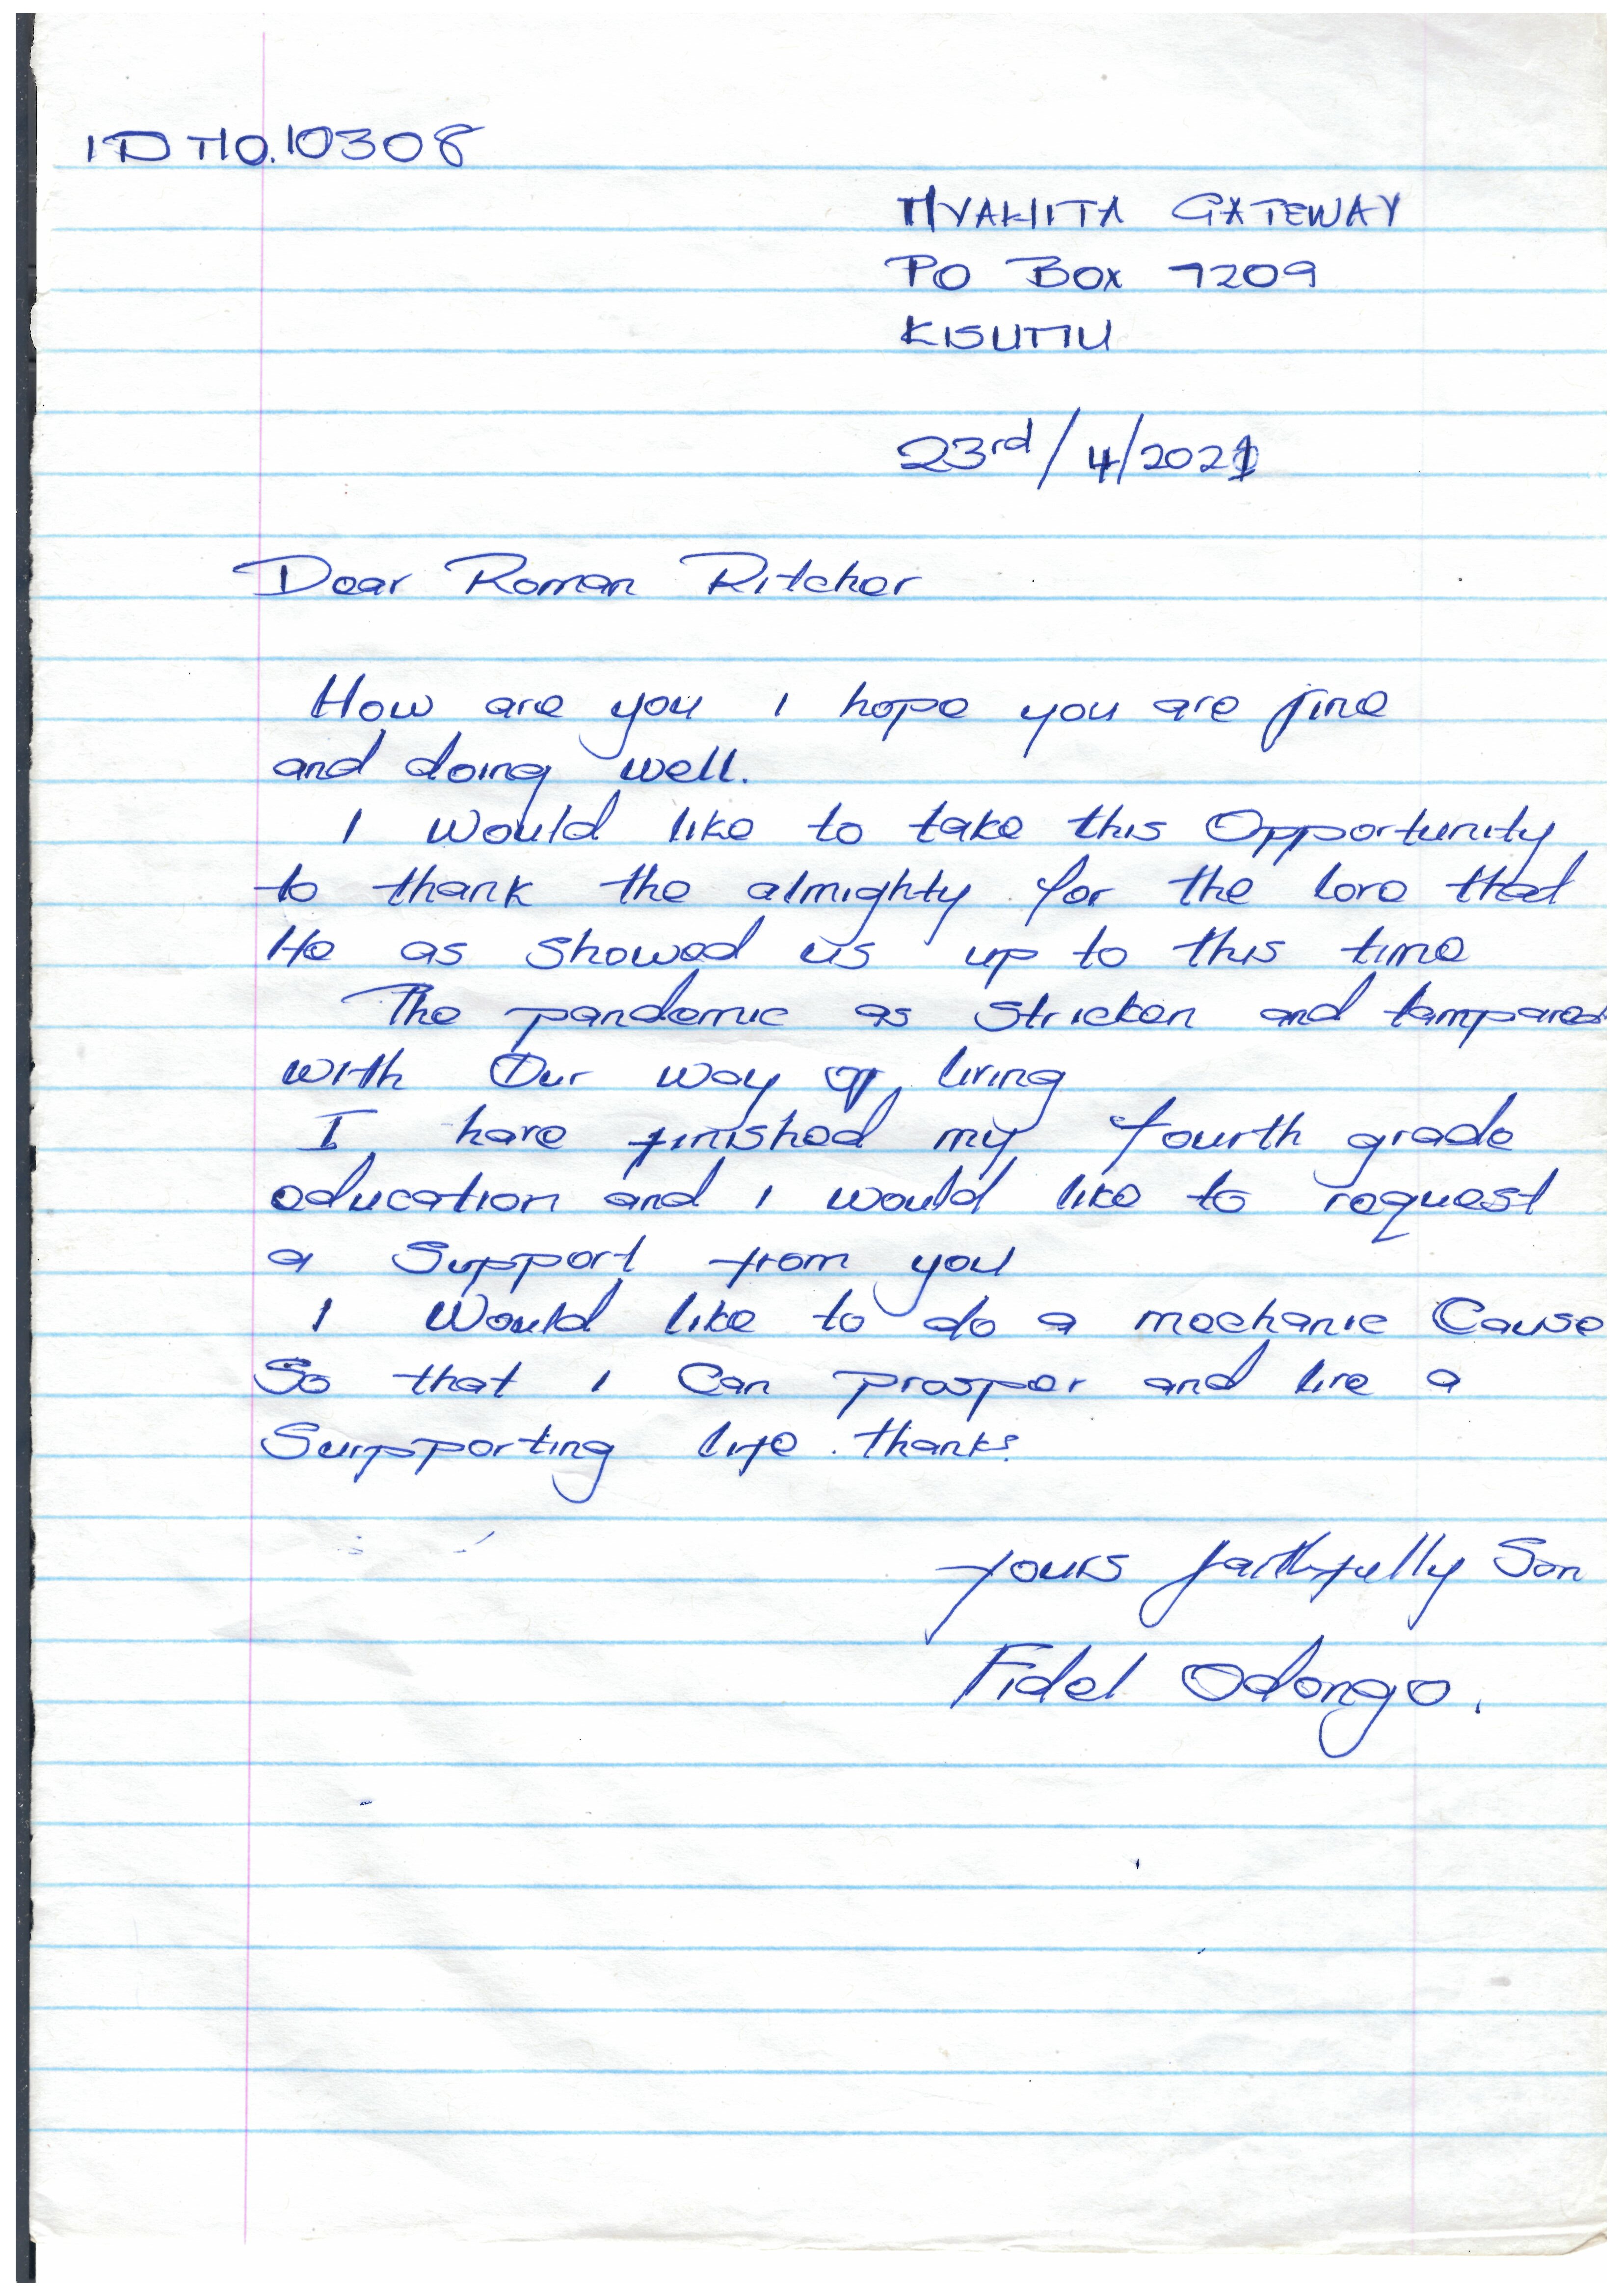 ID NO. 10308
NYAKITA GATEWAY
PO BOX 7209
KISUMU
23rd/4/2021
Dear Roman Ritcher
How are you I hope you are fine
and doing well.
I Would like to take this Opportunity
to thank the almighty for the love that
He as showed us up to this time
The pandemic as stricken and tampared
with Our way of living
I have finished my fourth grade
education and I would like to request
a Support from you
I Would like to do a mechanic Cause
So that I Can prosper and live a
Surpporting life. thanks.
yours faithfully Son
Fidel Odongo.